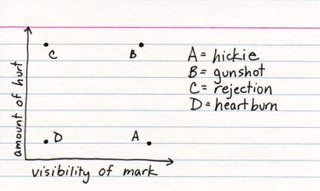 C
B
A = hickie
B = gunshot
C = rejection
D = heartburn
D
A
amount of hurt
visibility of mark